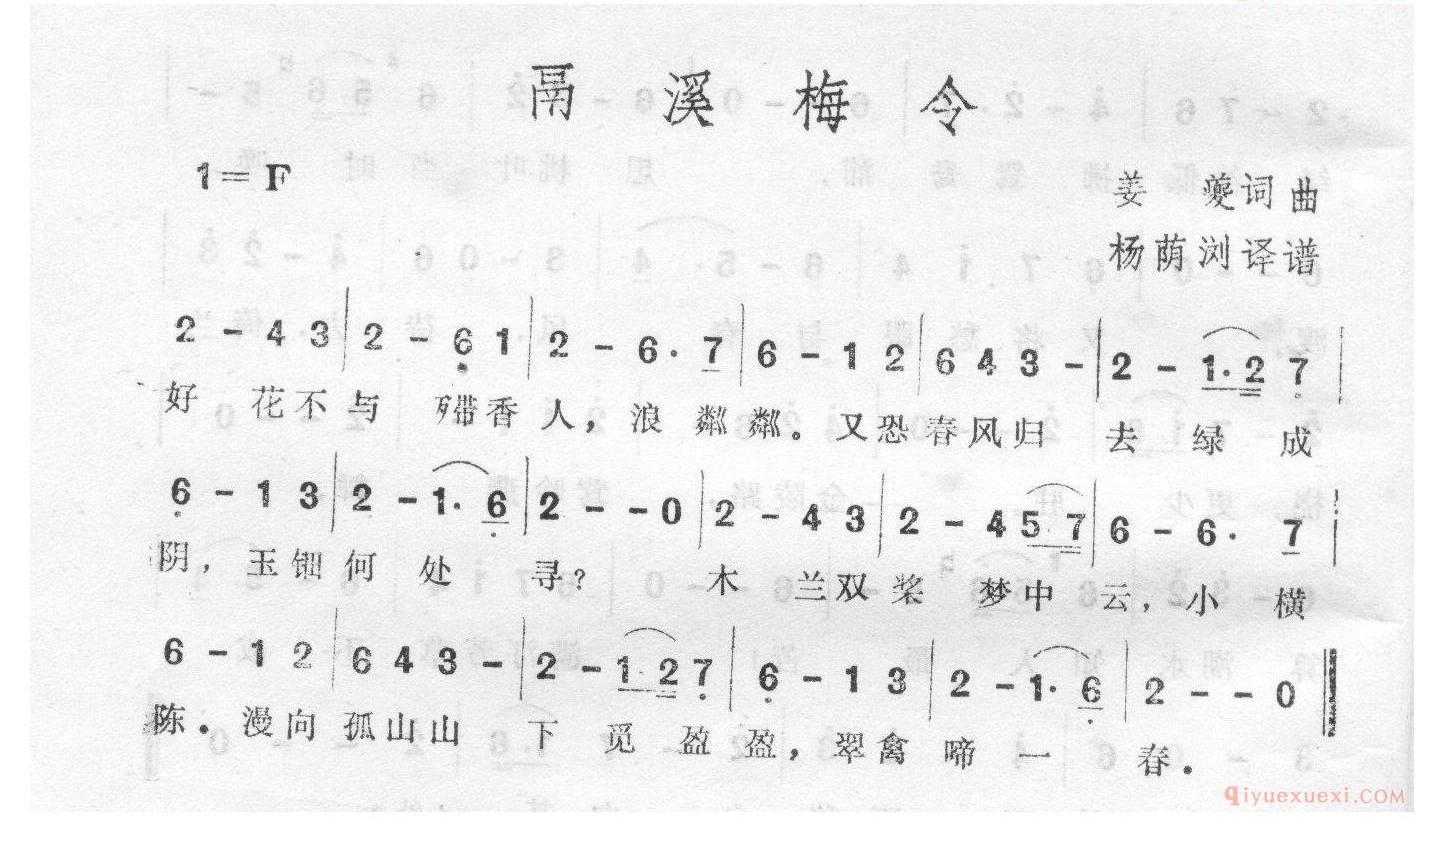 鬲溪梅令
1=F
姜夔词曲
杨荫浏译谱
2 - 4 3 | 2 - 6 1 | 2 - 6. 7 | 6 - 1 2 | 6 4 3 - | 2 - 1. 2 7 |
好 花不与 殢香人，浪粼粼。又恐春风归 去绿成
6 - 1 3 | 2 - 1. 6 | 2 - - 0 | 2 - 4 3 | 2 - 4 5 7 | 6 - 6. 7 |
阴，玉钿何处 寻？ 木 兰双桨 梦中云，小横
6 - 1 2 | 6 4 3 - | 2 - 1. 2 7 | 6 - 1 3 | 2 - 1. 6 | 2 - - 0
陈．漫向孤山山 下觅盈盈，翠禽啼一 春．
qiyuexuexi.COM